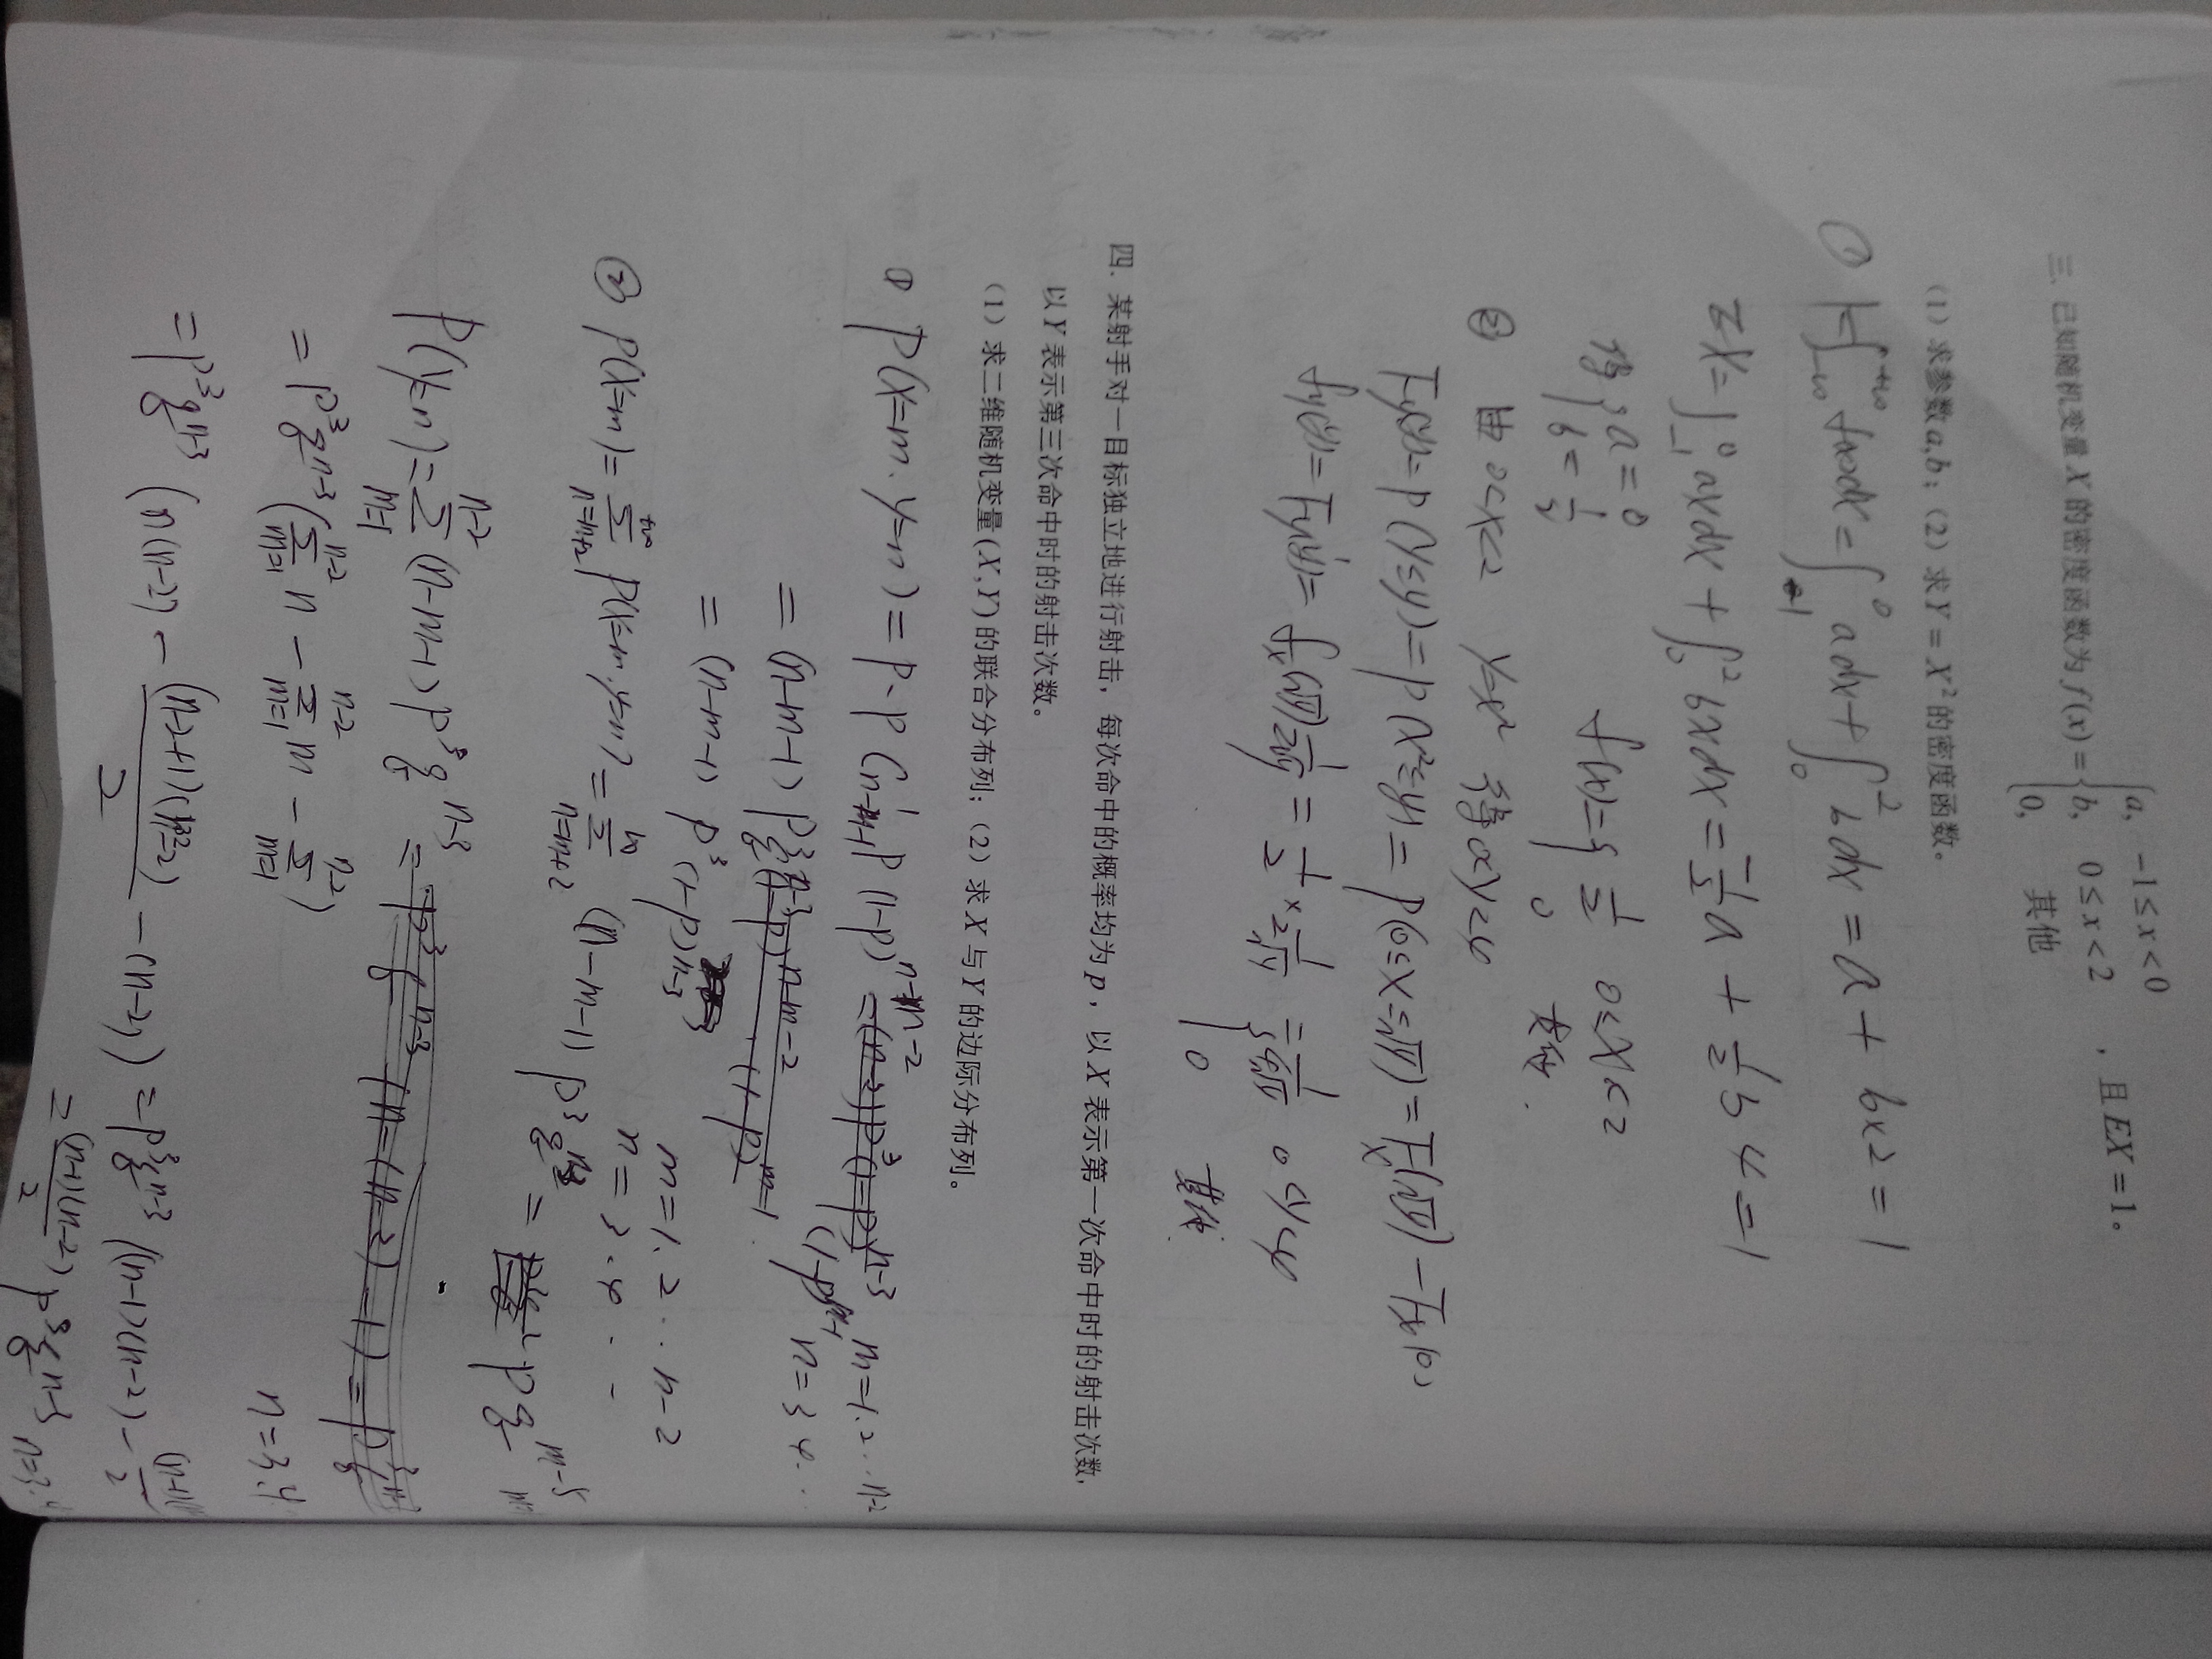 三. 已知随机变量 X 的密度函数为 f(x) = { a, -1 ≤ x < 0
b, 0 ≤ x < 2 , 且 EX = 1。
0, 其他
(1) 求参数 a,b; (2) 求 Y = X² 的密度函数。
① 1=∫_{-∞}^{+∞} f(x)dx = ∫_{-1}^{0} a dx + ∫_{0}^{2} b dx = a + b×2 = 1
EX = ∫_{-1}^{0} ax dx + ∫_{0}^{2} bx dx = -1/2 a + 1/2 b 4 = 1
得 { a = 0
b = 1/2
f(x) = { 1/2 0≤X<2
0 其他.
② 由 0<X<2 Y=X² 得 0<Y<4
F_Y(y) = P(Y≤y) = P(X²≤y) = P(0≤X≤√y) = F_X(√y) - F_X(0)
f_Y(y) = F_Y'(y) = f_X(√y) 1/2√y = 1/2 × 1/2√y = { 1/4√y 0<Y<4
0 其他.
四. 某射手对一目标独立地进行射击, 每次命中的概率均为 p, 以 X 表示第一次命中时的射击次数,
以 Y 表示第三次命中时的射击次数。
(1) 求二维随机变量 (X,Y) 的联合分布列; (2) 求 X 与 Y 的边际分布列。
① P(X=m. Y=n) = P·P
m=1.2...n-2
= (n-m-1)
n=3 4...
= (n-m-1) p³(1-p)^{n-3}
m=1.2...n-2
n=3.4...
② P(X=m) = Σ_{n=m+2}^{+∞} P(X=m.Y=n) = Σ_{n=m+2}^{∞} (n-m-1) p³
P(Y=n) = Σ_{m=1}^{n-2} (n-m-1) p³ q^{n-3}
= p³q^{n-3} (Σ_{m=1}^{n-2} n - Σ_{m=1}^{n-2} m - Σ_{m=1}^{n-2})
n=3.4
= p³q^{n-3} (n(n-2) - (n-2+1)(n-2)/2 - (n-2)) = p³q^{n-3} ((n-1)(n-2) -